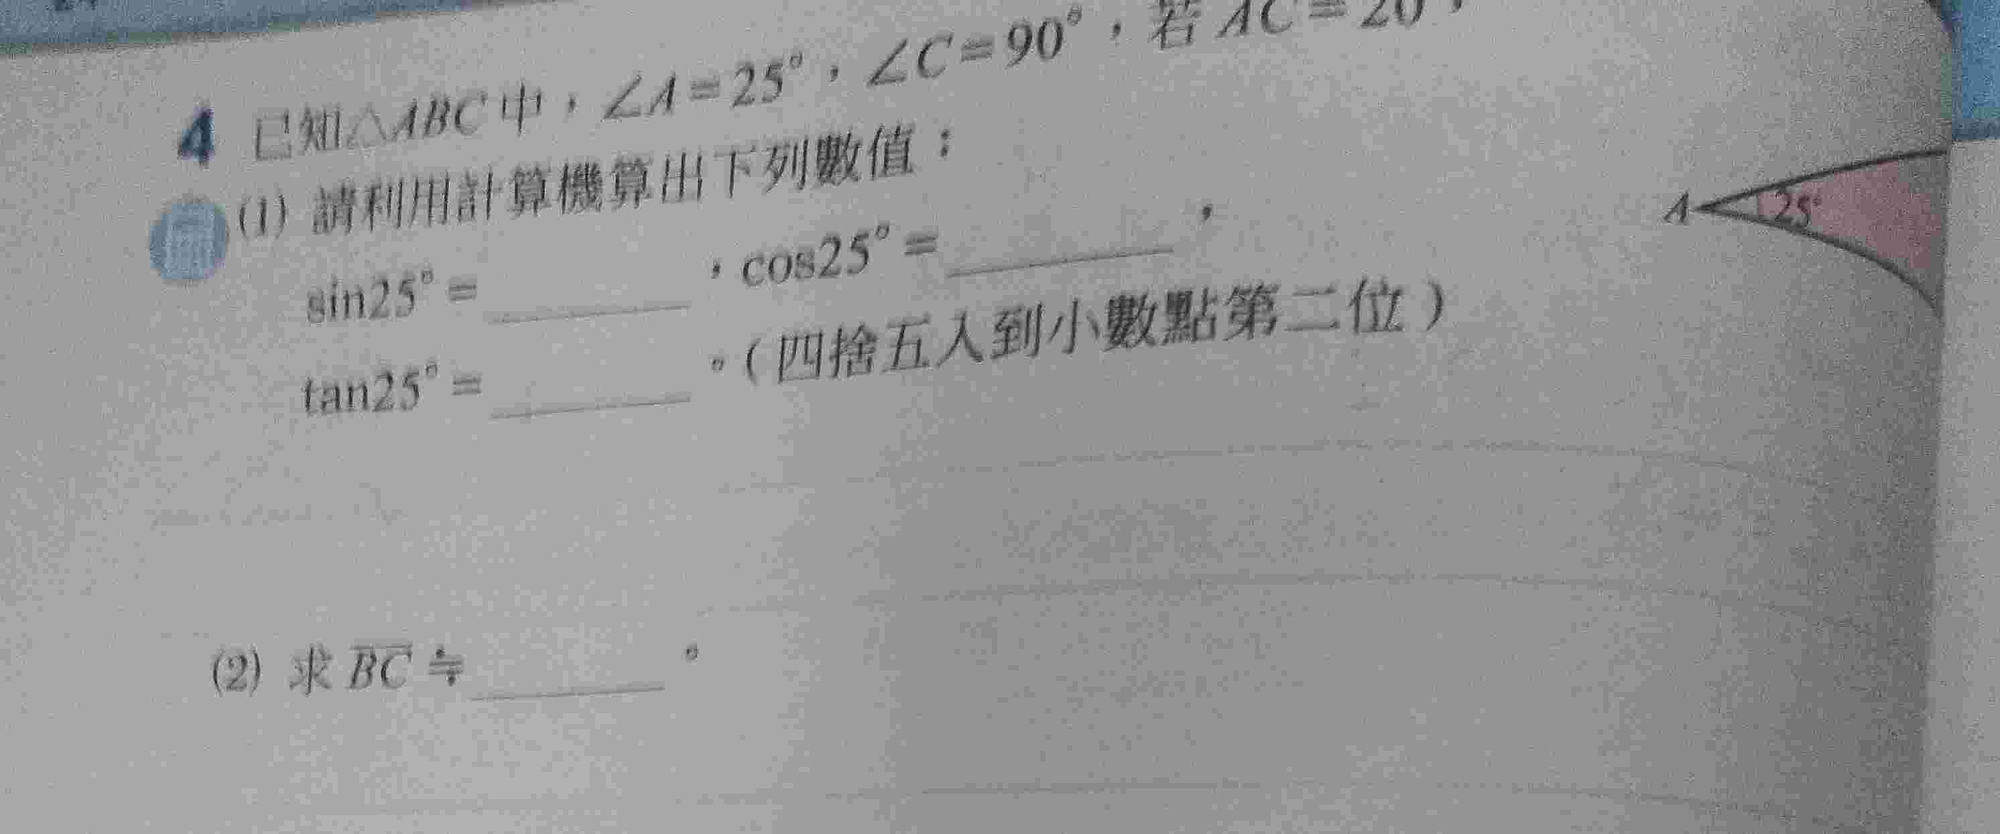 4 已知△ABC中，∠A=25°，∠C=90°，若 AC=20，
(1) 請利用計算機算出下列數值：
sin25°=______，cos25°=______，
tan25°=______。(四捨五入到小數點第二位)
A 25°
(2) 求 BC≒______。